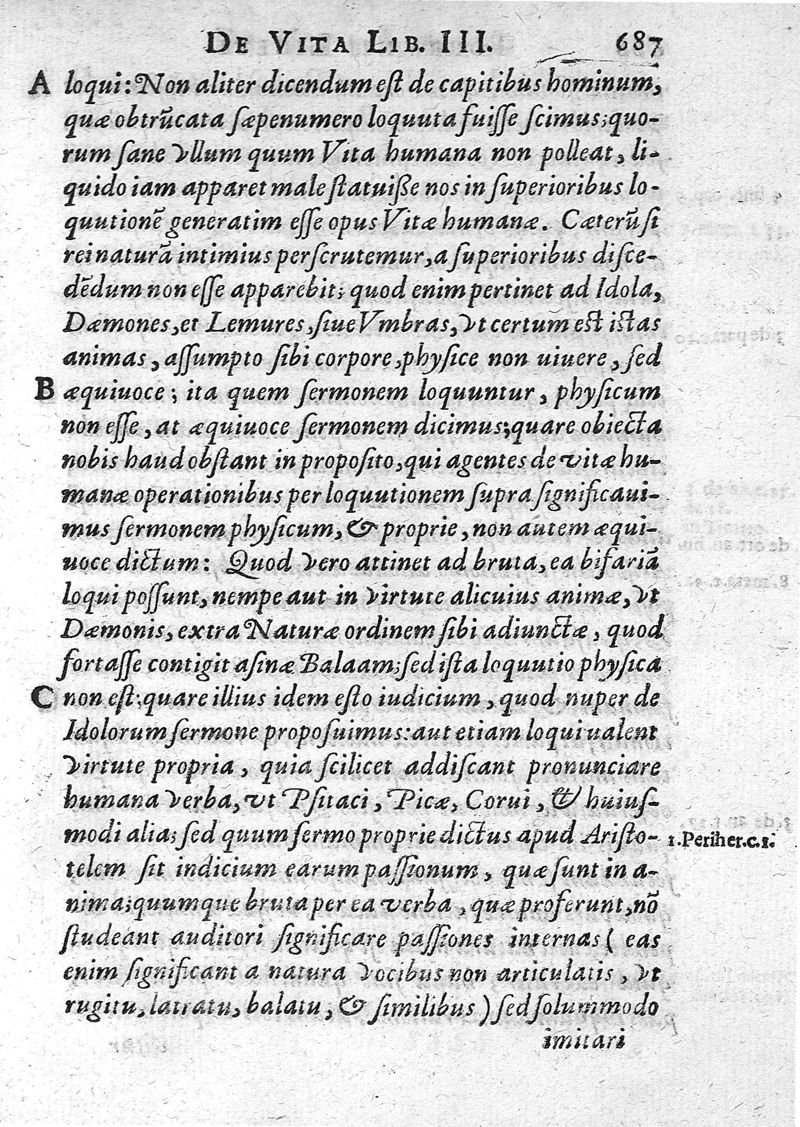 DE VITA LIB. III. 687
A loqui: Non aliter dicendum eſt de capitibus hominum,
quæ obtrũcata ſæpenumero loquuta fuiſſe ſcimus; quo-
rum ſane vllum quum Vita humana non polleat, li-
quido iam apparet male ſtatuiße nos in ſuperioribus lo-
quutionẽ generatim eſſe opus Vitæ humanæ. Cæterũ ſi
rei naturã intimius perſcrutemur, a ſuperioribus diſce-
dẽdum non eſſe apparebit; quod enim pertinet ad Idola,
Dæmones, et Lemures, ſiue Vmbras, vt certum eſt iſtas
animas, aſſumpto ſibi corpore, phyſice non uiuere, ſed
B æquiuoce; ita quem ſermonem loquuntur, phyſicum
non eſſe, at æquiuoce ſermonem dicimus; quare obiecta
nobis haud obſtant in propoſito, qui agentes de vitæ hu-
manæ operationibus per loquutionem ſupra ſignificaui-
mus ſermonem phyſicum, & proprie, non autem æqui-
uoce dictum: Quod vero attinet ad bruta, ea bifariã
loqui poſſunt, nempe aut in virtute alicuius animæ, vt
Dæmonis, extra Naturæ ordinem ſibi adiunctæ, quod
fortaſſe contigit aſinæ Balaam; ſed iſta loquutio phyſica
C non eſt; quare illius idem eſto iudicium, quod nuper de
Idolorum ſermone propoſuimus: aut etiam loqui ualent
virtute propria, quia ſcilicet addiſcant pronunciare
humana verba, vt Pſitaci, Picæ, Corui, & huiuſ-
modi alia; ſed quum ſermo proprie dictus apud Ariſto-
1. Periher. c. 1.
telem ſit indicium earum paſſionum, quæ ſunt in a-
nima; quumque bruta per ea verba, quæ proferunt, nõ
ſtudeant auditori ſignificare paſſiones internas ( eas
enim ſignificant a natura vocibus non articulatis, vt
rugitu, latratu, balatu, & ſimilibus ) ſed ſolummodo
imitari